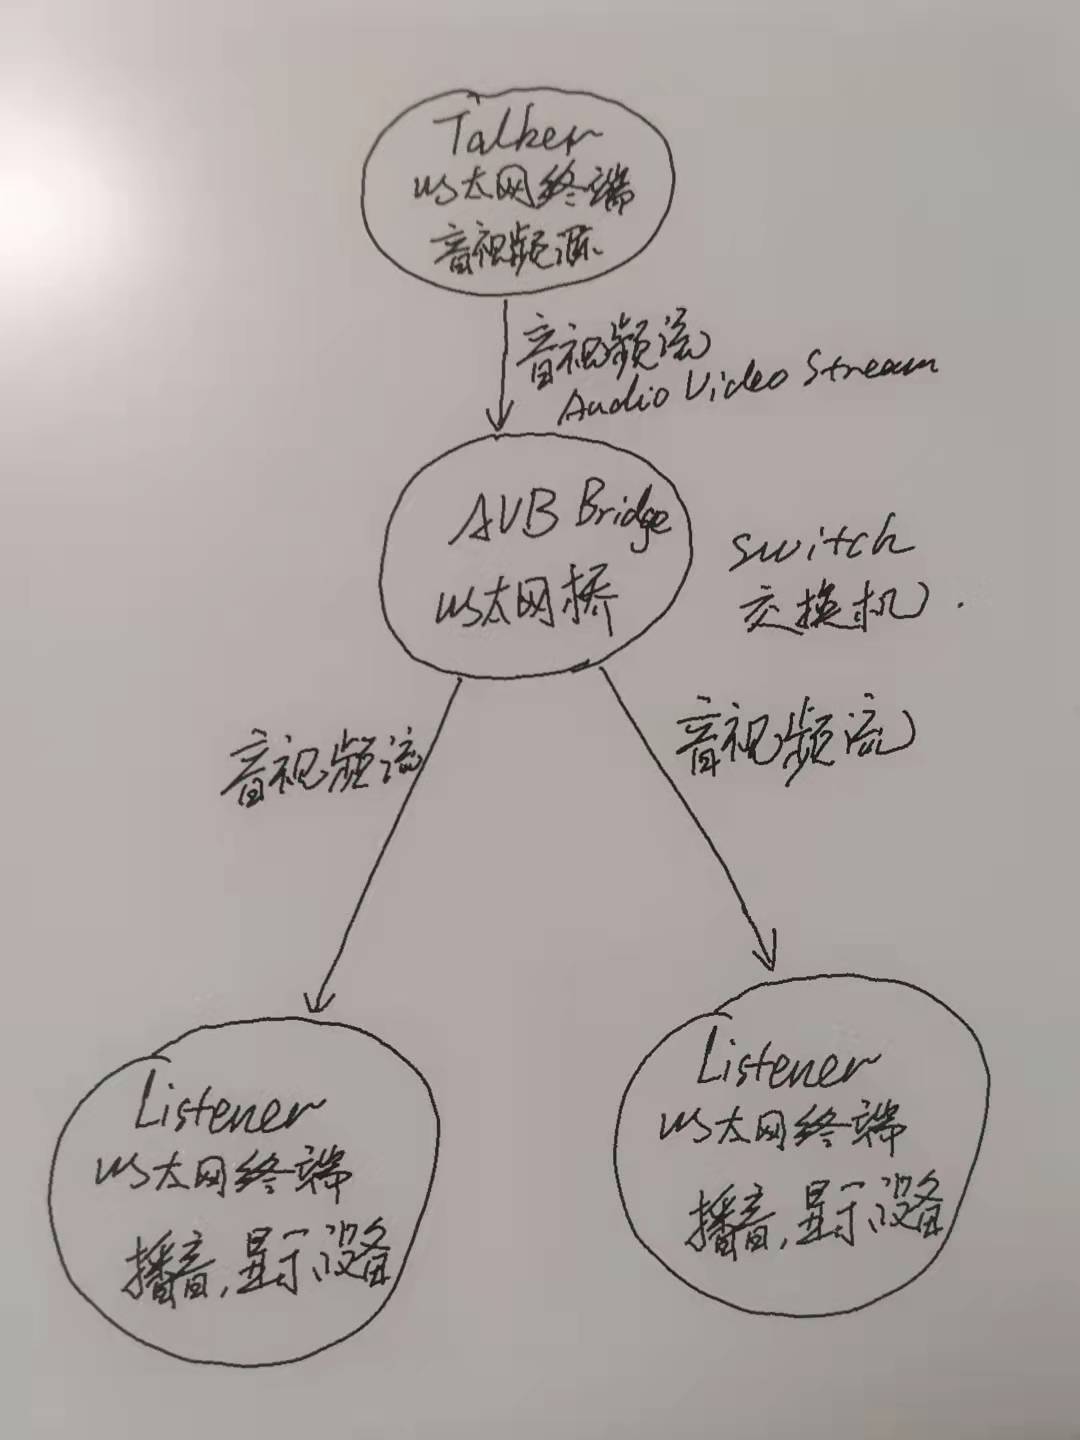 Talker
以太网终端
音视频源
音视频流
Audio Video Stream
AVB Bridge
以太网桥
switch
交换机
音视频流
音视频流
Listener
以太网终端
播音,显示设备
Listener
以太网终端
播音,显示设备